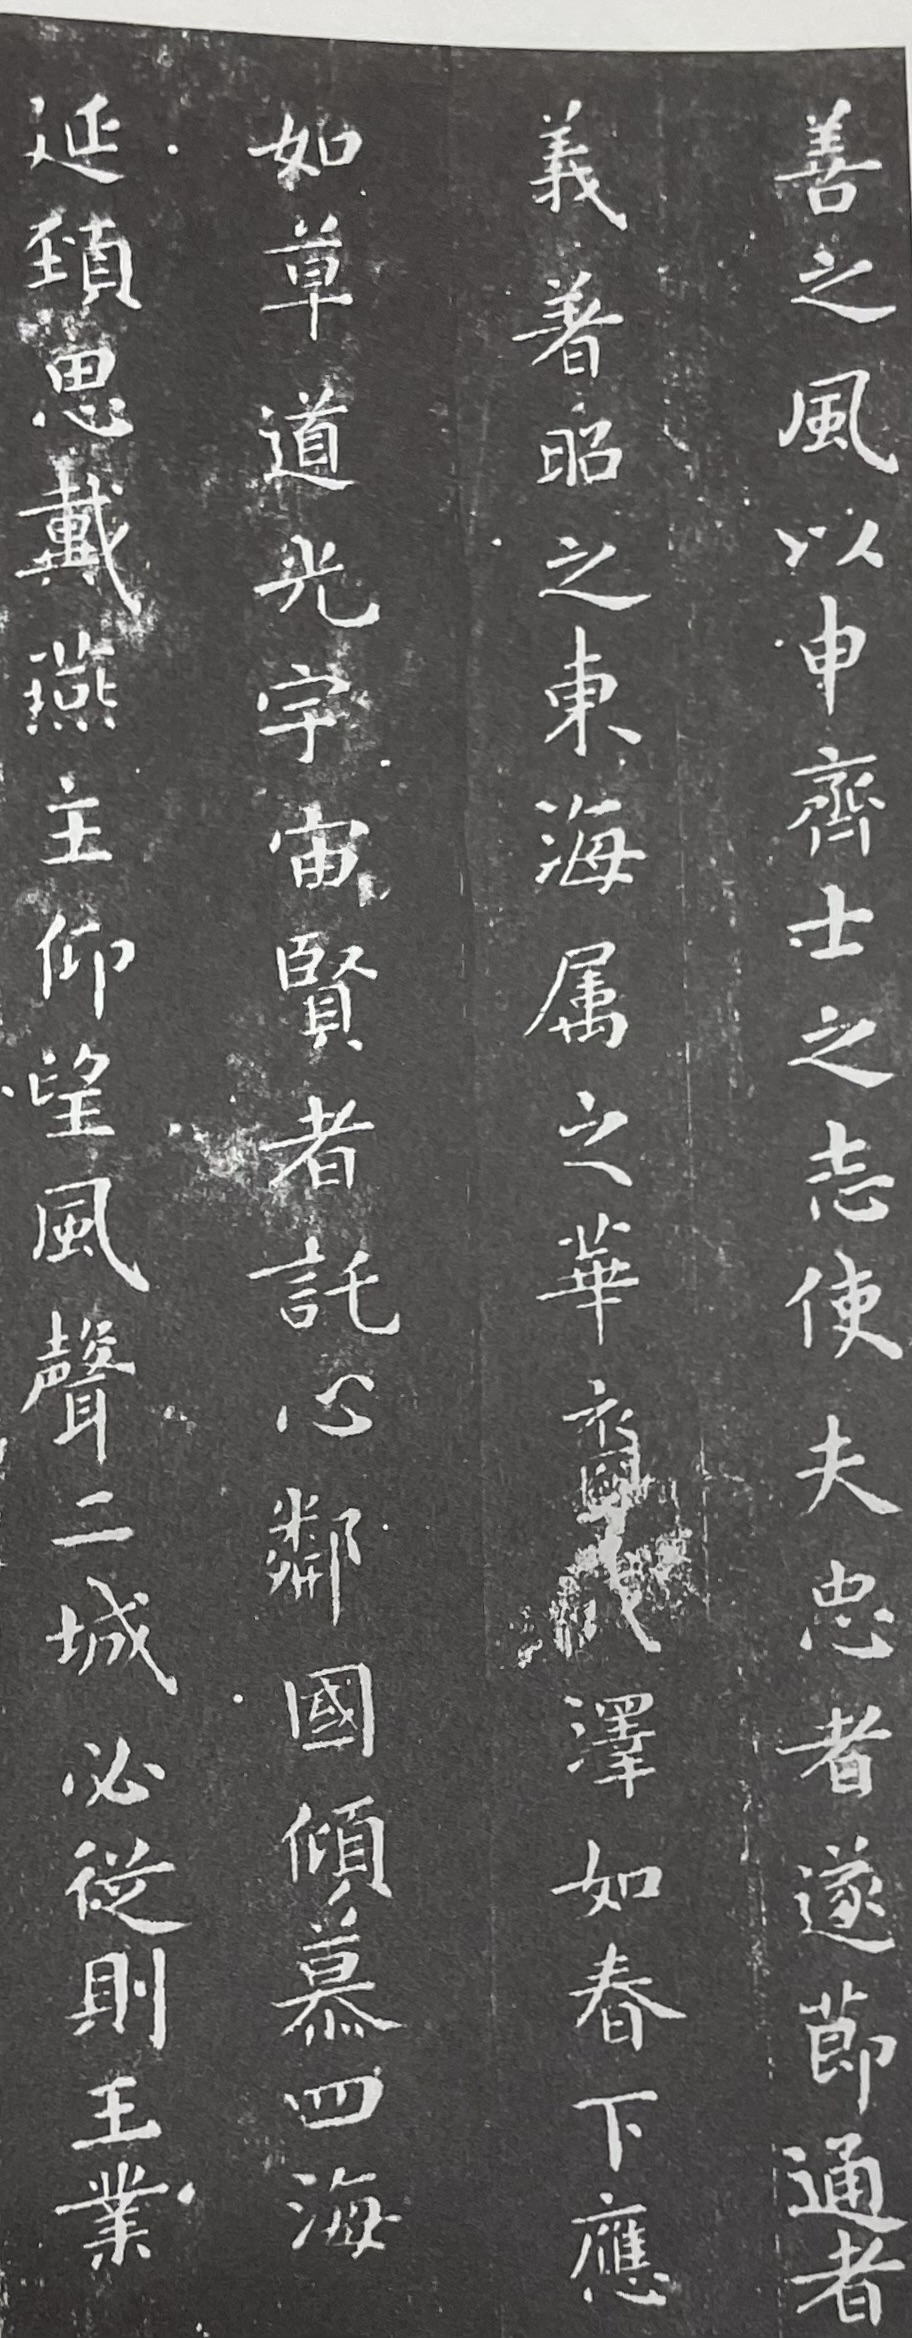 善之風以申齊士之志使夫忠者遂莭通者
義著昭之東海属之華裔我澤如春下應
如草道光宇宙賢者託心鄰國傾慕四海
延頸思戴燕主仰望風聲二城必從則王業